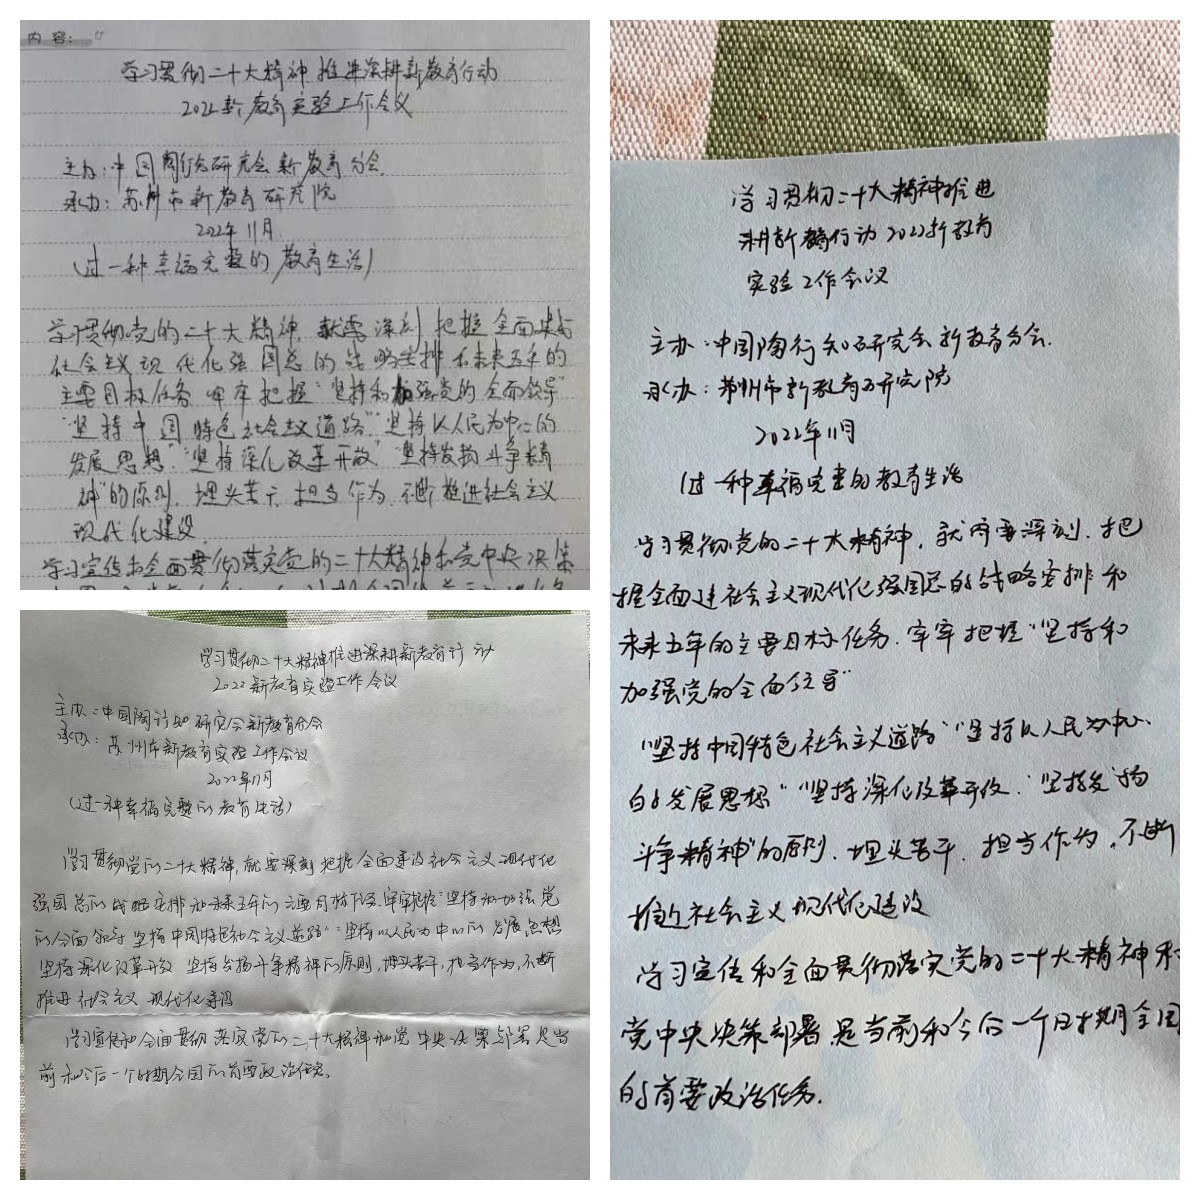 内容:
学习贯彻二十大精神 推进深耕新教育行动
2022新教育实验工作会议
主办:中国陶行知研究会新教育分会.
承办:苏州市新教育研究院
2022年11月
(过一种幸福完整的教育生活)
学习贯彻党的二十大精神,就要深刻把握全面建设
社会主义现代化强国总的战略安排和未来五年的
主要目标任务 牢牢把握"坚持和加强党的全面领导"
"坚持中国特色社会主义道路""坚持以人民为中心的
发展思想""坚持深化改革开放""坚持发扬斗争精
神"的原则,埋头苦干,担当作为,不断推进社会主义
现代化建设.
学习宣传和全面贯彻落实党的二十大精神和党中央决策
学习贯彻二十大精神推进深耕新教育行动
2022新教育实验工作会议
主办:中国陶行知研究会新教育分会
承办:苏州市新教育实验工作会议
2022年11月
(过一种幸福完整的教育生活)
学习贯彻党的二十大精神,就要深刻把握全面建设社会主义现代化
强国总的战略安排和未来五年的主要目标任务.牢牢把握"坚持和加强党
的全面领导 坚持中国特色社会主义道路""坚持以人民为中心的发展思想
坚持深化改革开放 坚持发扬斗争精神的原则,埋头苦干,担当作为,不断
推进社会主义现代化建设
学习宣传和全面贯彻落实党的二十大精神和党中央决策部署是当
前和今后一个时期全国的首要政治任务。
学习贯彻二十大精神推进
耕新教育行动2022新教育
实验工作会议
主办:中国陶行知研究会新教育分会.
承办:苏州市新教育研究院
2022年11月
(过一种幸福完整的教育生活
学习贯彻党的二十大精神,就需要深刻.把
握全面建社会主义现代化强国总的战略安排和
未来五年的主要目标任务.牢牢把握"坚持和
加强党的全面领导"
"坚持中国特色社会主义道路""坚持以人民为中心
的发展思想""坚持深化改革开放.""坚持发扬
斗争精神"的原则.埋头苦干.担当作为.不断
推进社会主义现代化建设
学习宣传和全面贯彻落实党的二十大精神和
党中央决策部署.是当前和今后一个时期全国
的首要政治任务.